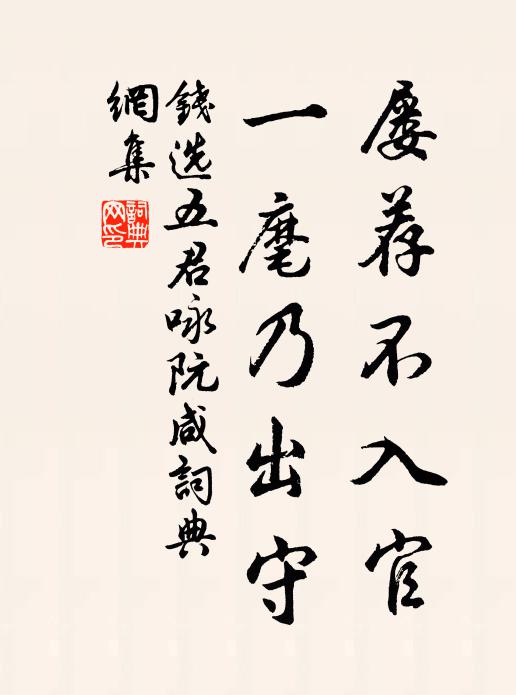 屡荐不入官
一麾乃出守
錢选五君咏阮咸詞典
網集
詞典网印